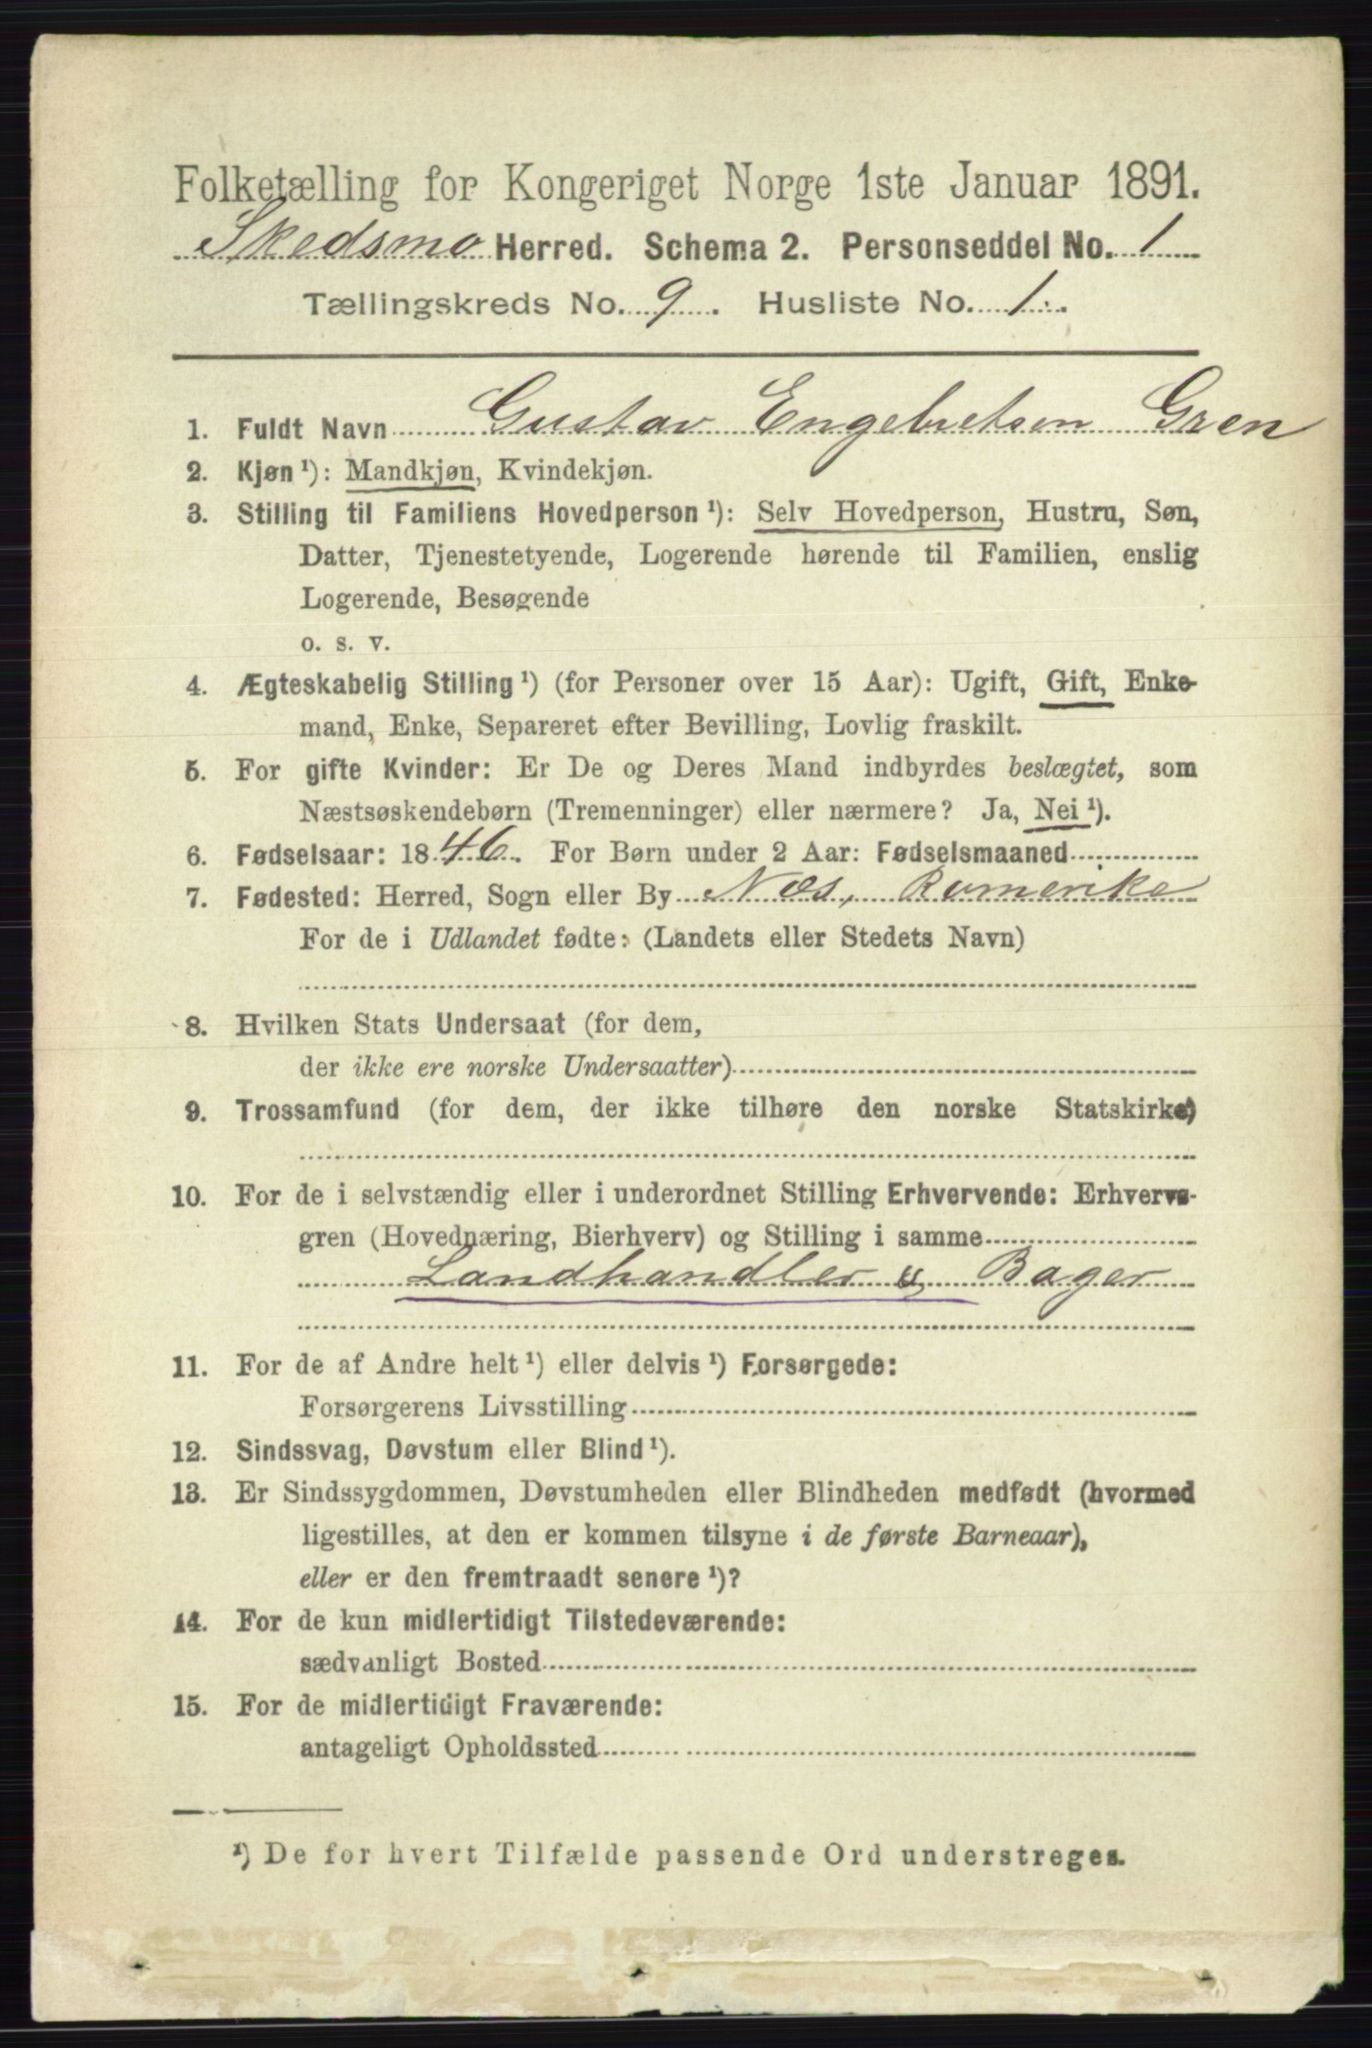 Folketælling for Kongeriget Norge 1ste Januar 1891.
Skedsmo Herred. Schema 2. Personseddel No. 1
Tællingskreds No. 9. Husliste No. 1.
1. Fuldt Navn Gustav Engebretsen Gren
2. Kjøn ¹): Mandkjøn, Kvindekjøn.
3. Stilling til Familiens Hovedperson ¹): Selv Hovedperson, Hustru, Søn,
Datter, Tjenestetyende, Logerende hørende til Familien, enslig
Logerende, Besøgende
o. s. v.
4. Ægteskabelig Stilling ¹) (for Personer over 15 Aar): Ugift, Gift, Enke-
mand, Enke, Separeret efter Bevilling, Lovlig fraskilt.
5. For gifte Kvinder: Er De og Deres Mand indbyrdes beslægtet, som
Næstsøskendebørn (Tremenninger) eller nærmere? Ja, Nei ¹).
6. Fødselsaar: 1846. For Børn under 2 Aar: Fødselsmaaned
7. Fødested: Herred, Sogn eller By Næs, Romerike
For de i Udlandet fødte: (Landets eller Stedets Navn)
8. Hvilken Stats Undersaat (for dem,
der ikke ere norske Undersaatter)
9. Trossamfund (for dem, der ikke tilhøre den norske Statskirke)
10. For de i selvstændig eller i underordnet Stilling Erhvervende: Erhvervs-
gren (Hovednæring, Bierhverv) og Stilling i samme
Landhandler & Bager
11. For de af Andre helt ¹) eller delvis ¹) Forsørgede:
Forsørgerens Livsstilling
12. Sindssvag, Døvstum eller Blind ¹).
13. Er Sindssygdommen, Døvstumheden eller Blindheden medfødt (hvormed
ligestilles, at den er kommen tilsyne i de første Barneaar),
eller er den fremtraadt senere ¹)?
14. For de kun midlertidigt Tilstedeværende:
sædvanligt Bosted
15. For de midlertidigt Fraværende:
antageligt Opholdssted
¹) De for hvert Tilfælde passende Ord understreges.